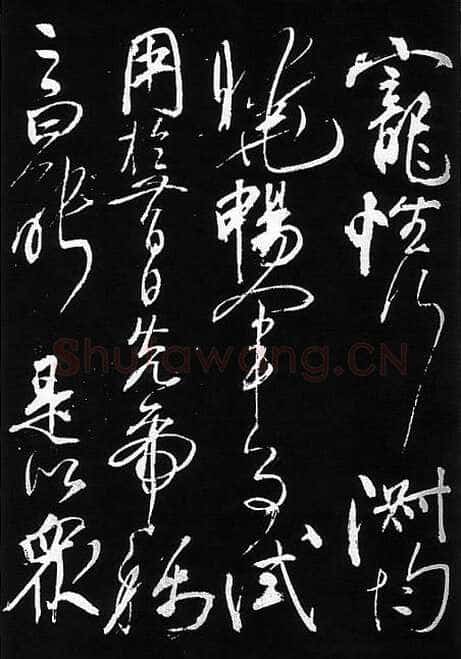 寵性行淑均
曉暢軍事試
用於昔日先帝稱
之曰能是以衆
Shufawang.CN